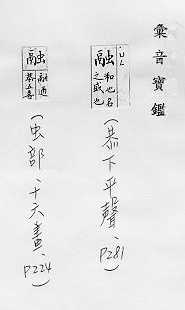 彙音寶鑑
融 和也名
之盛也
(恭下平聲、P281)
融 融通
恭五喜
(虫部、十六畫、P224)